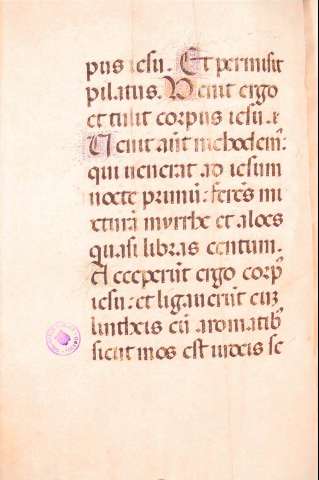 pus iesu. Et permisit
pilatus. Venit ergo
et tulit corpus iesu. τ
Venit aūt nichodem᷒:
qui uenerat ad iesum
nocte primū: ferēs mi
xturā myrrhe et aloes
quasi libras centum.
Acceperūt ergo corp᷒
iesu: et ligauerūt euꝫ
lintheis cū aromatib᷒
sicut mos est iudeis se